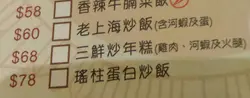 $58 香辣牛腩菜飯
$60 老上海炒飯(含河蝦及蛋)
$68 三鮮炒年糕(雞肉、河蝦及火腿)
$78 瑤柱蛋白炒飯